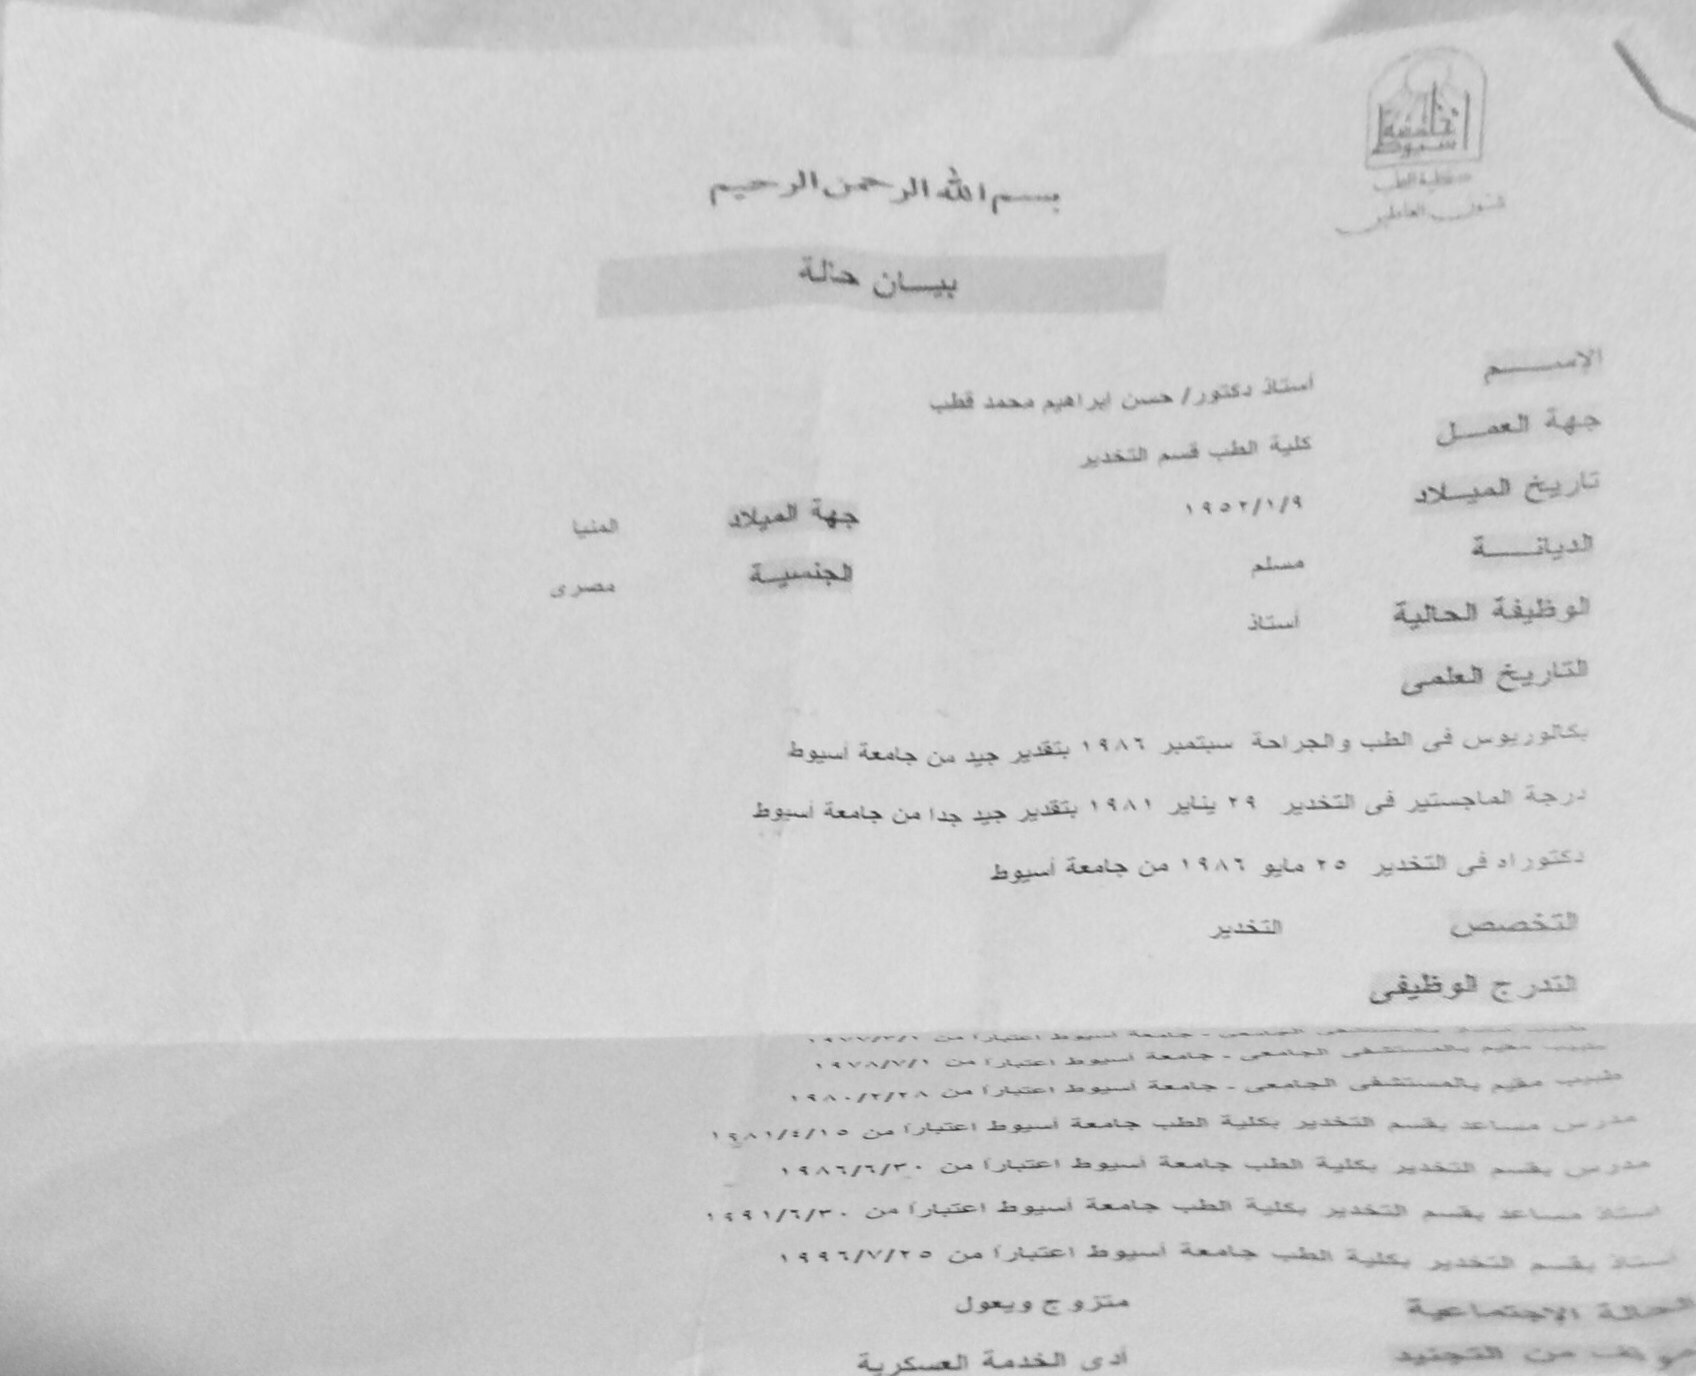 جامعة أسيوط
كلية الطب
شئون العاملين
بسم الله الرحمن الرحيم
بيـــان حالة
الاســــــم أستاذ دكتور/ حسن ابراهيم محمد قطب
جهة العمـــل كلية الطب قسم التخدير
تاريخ الميـــلاد ١٩٥٢/١/٩ جهة الميلاد المنيا
الديانـــــة مسلم الجنسيـــة مصرى
الوظيفة الحالية أستاذ
التاريخ العلمى
بكالوريوس فى الطب والجراحة سبتمبر ١٩٨٦ بتقدير جيد من جامعة أسيوط
درجة الماجستير فى التخدير ٢٩ يناير ١٩٨١ بتقدير جيد جدا من جامعة أسيوط
دكتوراه فى التخدير ٢٥ مايو ١٩٨٦ من جامعة أسيوط
التخصص التخدير
التدرج الوظيفى
طبيب بالمستشفى الجامعى - جامعة أسيوط اعتباراً من
طبيب مقيم بالمستشفى الجامعى - جامعة أسيوط اعتباراً من ١٩٧٨/٧/١
طبيب مقيم بالمستشفى الجامعى - جامعة أسيوط اعتباراً من ١٩٨٠/٢/٢٨
مدرس مساعد بقسم التخدير بكلية الطب جامعة أسيوط اعتباراً من ١٩٨١/٤/١٥
مدرس بقسم التخدير بكلية الطب جامعة أسيوط اعتباراً من ١٩٨٦/٦/٣٠
أستاذ مساعد بقسم التخدير بكلية الطب جامعة أسيوط اعتباراً من ١٩٩١/٦/٣٠
أستاذ بقسم التخدير بكلية الطب جامعة أسيوط اعتباراً من ١٩٩٦/٧/٢٥
الحالة الاجتماعية متزوج ويعول
موقف من التجنيد أدى الخدمة العسكرية